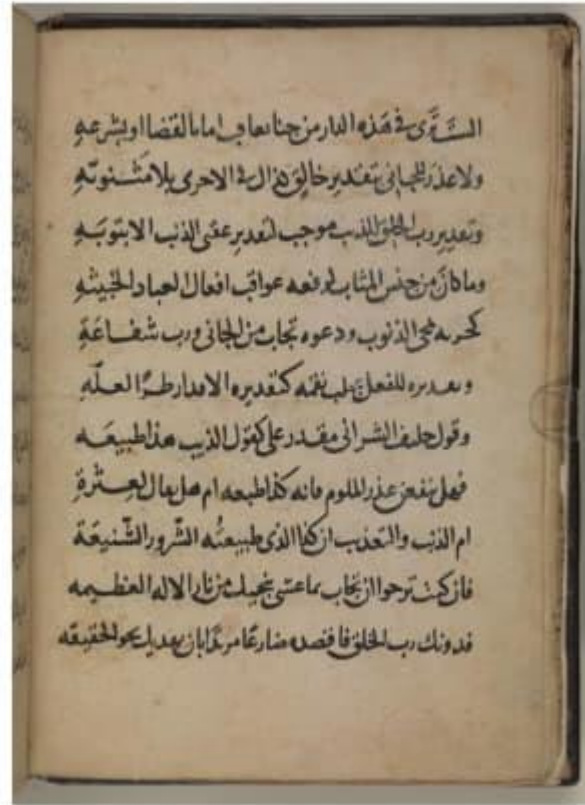 الست ترى في هذه الدار من جنا يعاقب امابالقضا او بشرعه
ولا عذر للجاني بتقدير خالق كذاك في الاخرى بلا مثنويه
وتقدير رب الخلق الذنب موجب لتقدير عقبى الذنب الا بتوبه
وما كان من جنس المتاب لرفعه عواقب افعال العباد الخبيثه
تمحى الذنوب ودعوه تجاب من الجاني ورب شفاعة
وتقديره للفعل يجلب نقمه كتقديره الاقدار طرًا العلّه
وقول حليف الشر انى مقدر على كقول الذيب هذا طبيعه
فهل ينفعن عذر الملوم فانه كذا طبعه ام هل يقال لعثرةِ
ام الذنب والتعذب الذى طبيعته الشرور الشنيعة
فان كنت ترجوا ان تجاب بما عسى ينجيك من نار الاله العظيمه
فدونك رب الخلق فاقصده ضارعًا مريدًا بان يهديك نحو الحقيقه